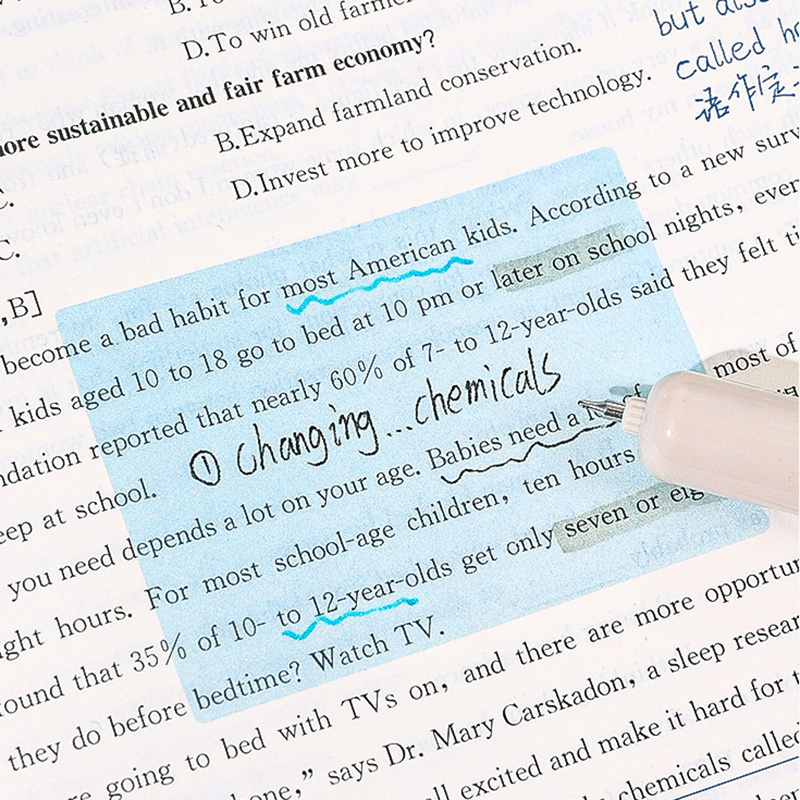 B.To
D.To win old farme
but also
ore sustainable and fair farm economy?
called
B.Expand farmland conservation.
语作定
D.Invest more to improve technology.
C.
C.
,B]
become a bad habit for most American kids. According to a new surv
kids aged 10 to 18 go to bed at 10 pm or later on school nights, ever
ndation reported that nearly 60% of 7- to 12-year-olds said they felt ti
① changing...chemicals
eep at school.
you need depends a lot on your age. Babies need a lot of most of
ght hours. For most school-age children, ten hours
ound that 35% of 10- to 12-year-olds get only seven or eig
they do before bedtime? Watch TV.
re going to bed with TVs on, and there are more opportun
one," says Dr. Mary Carskadon, a sleep resear
ll excited and make it hard for t
chemicals called